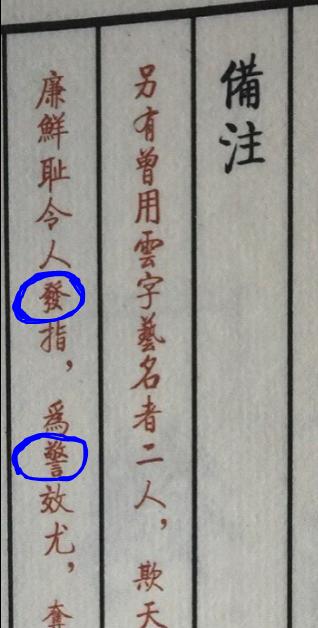 備注
另有曾用雲字藝名者二人，欺天
廉鮮耻令人發指，爲警效尤，奪